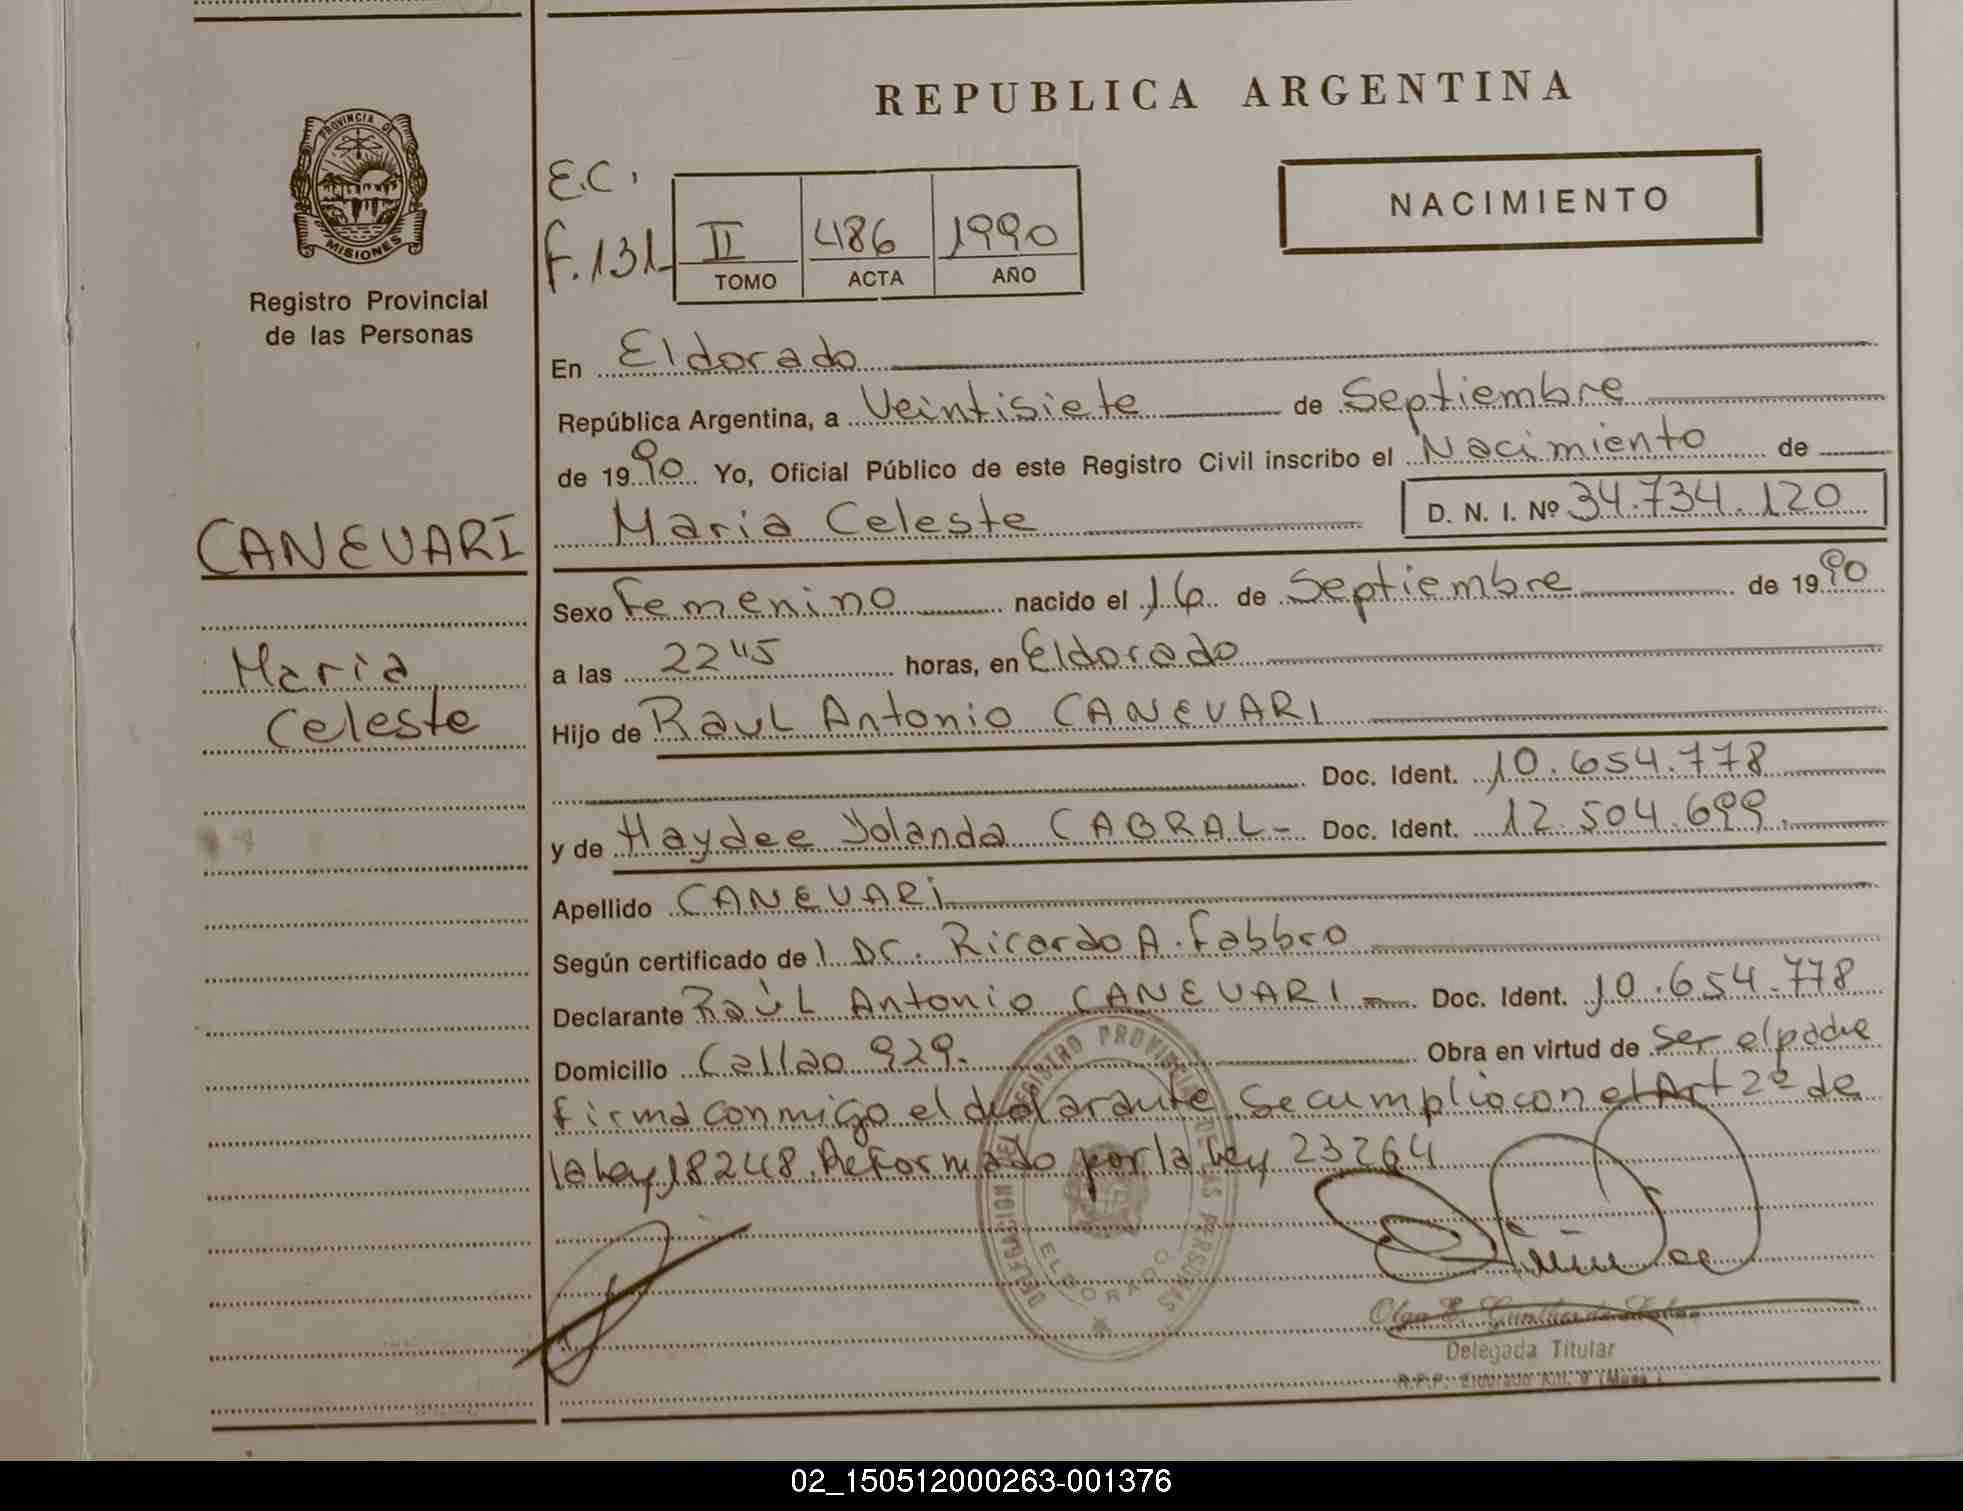 REPUBLICA ARGENTINA
PROVINCIA DE MISIONES
Registro Provincial
de las Personas
NACIMIENTO
E.C.
F.131
II 486 1990
TOMO ACTA AÑO
En Eldorado
República Argentina, a Veintisiete de Septiembre
de 1990 Yo, Oficial Público de este Registro Civil inscribo el Nacimiento de
Maria Celeste D. N. I. Nº 34.734.120
CANEVARI
Maria
Celeste
Sexo Femenino nacido el 16 de Septiembre de 1990
a las 22 45 horas, en Eldorado
Hijo de Raul Antonio CANEVARI
Doc. Ident. 10.654.778
y de Haydee Yolanda CABRAL- Doc. Ident. 12.504.699.
Apellido CANEVARI
Según certificado de l Dr. Ricardo A. Fabbro
Declarante Raúl Antonio CANEVARI Doc. Ident. 10.654.778
Domicilio Callao 929. Obra en virtud de ser el padre
firma conmigo el declarante. Se cumplio con el Art 2º de
la Ley 18248. Reformado por la Ley 23264
DELEGACION DEL REGISTRO PROVINCIAL DE LAS PERSONAS
ELDORADO
Olga E.
Delegada Titular
R.P.P. Eldorado
02_150512000263-001376